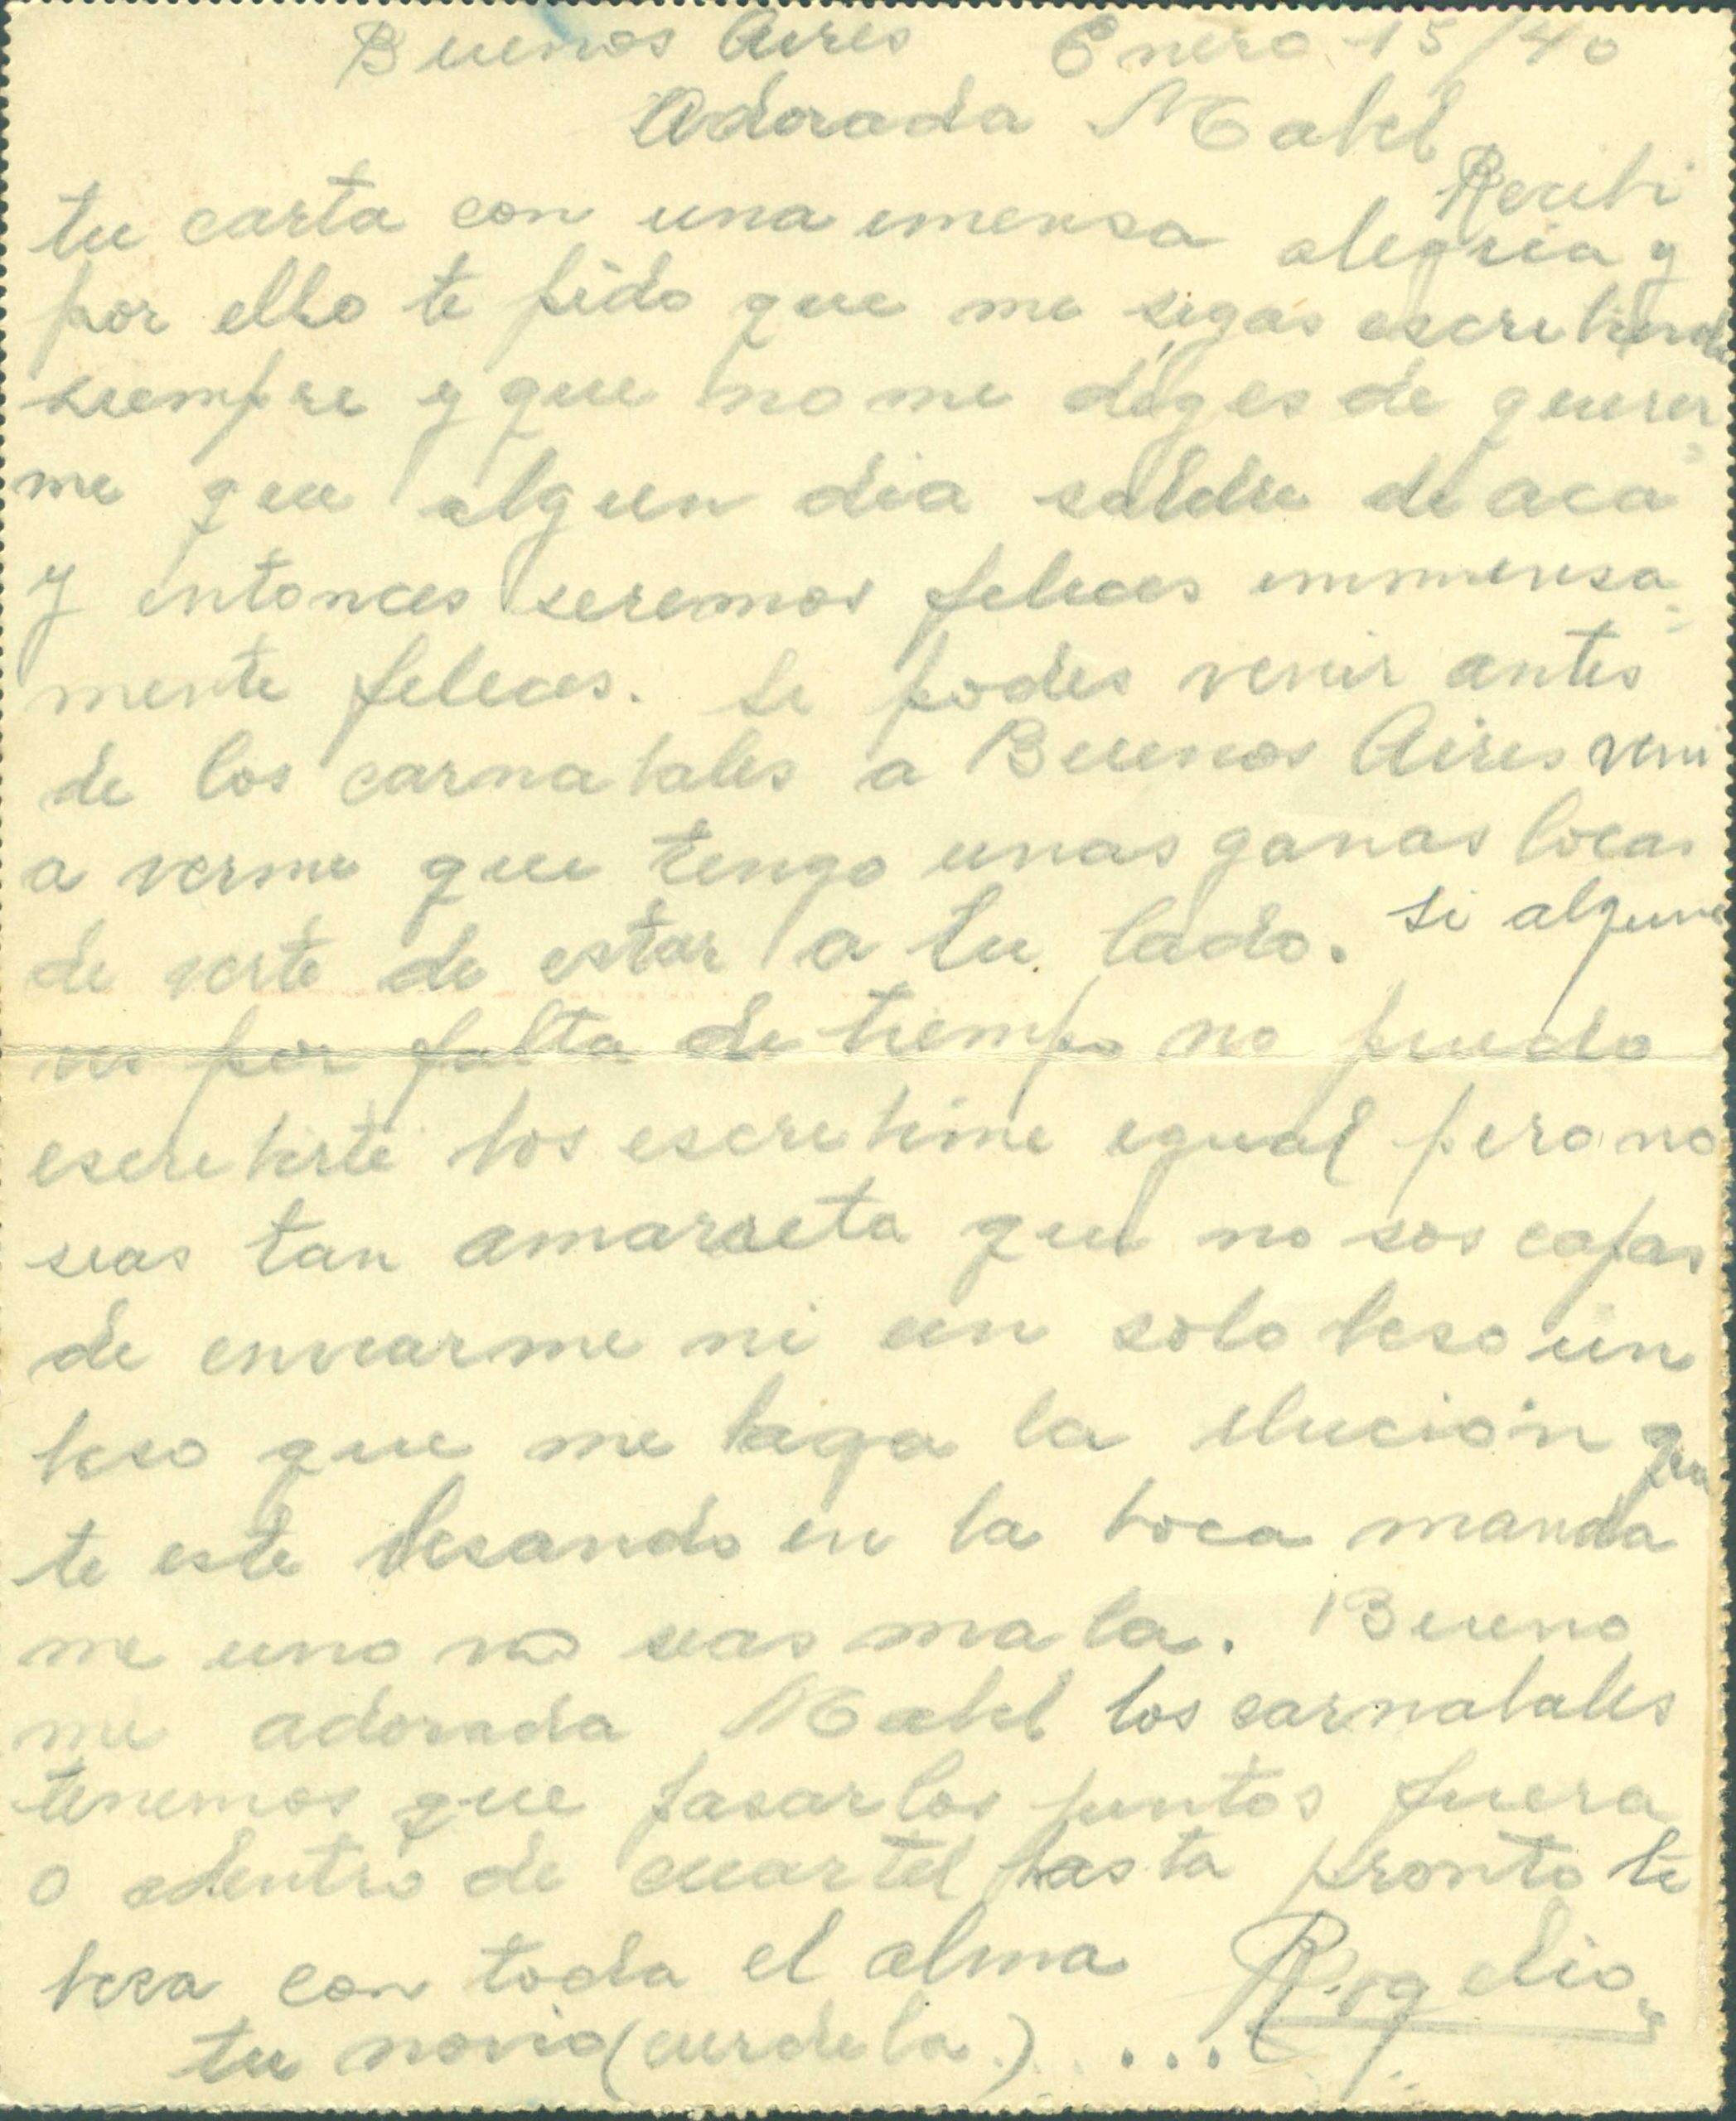 Buenos Aires Enero 15/40
Adorada Mabel
Recibi
tu carta con una imensa alegria y
por ello te pido que me sigas escribiendo
siempre y que no me déges de querer
me que algun dia saldre de aca
y entonces seremos felices inmensa
mente felices. Si podes venir antes
de los carnabales a Buenos Aires veni
a verme que tengo unas ganas locas
de verte de estar a tu lado. Si alguna
ves por falta de tiempo no puedo
escribirte bos escribime igual pero no
seas tan amarreta que no sos capas
de enviarme ni un solo beso un
beso que me haga la ilución que
te este besando en la boca manda
me uno no seas mala. Bueno
mi adorada Mabel los carnabales
tenemos que pasarlos juntos fuera
o adentro de cuartel hasta pronto te
besa con toda el alma Rogelio
tu novio (curdela) ...